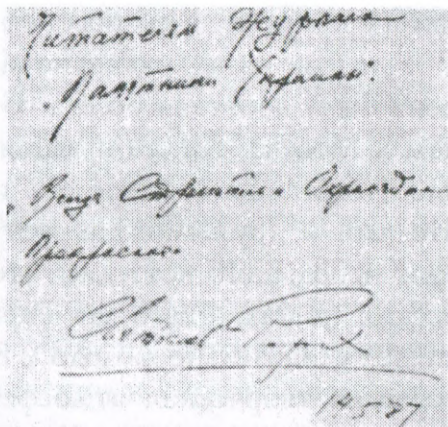 Читателям Журнала
"Памятники Украины".
Везде Стремитесь
Прекрасного
Святослав Рерих
14.5.87